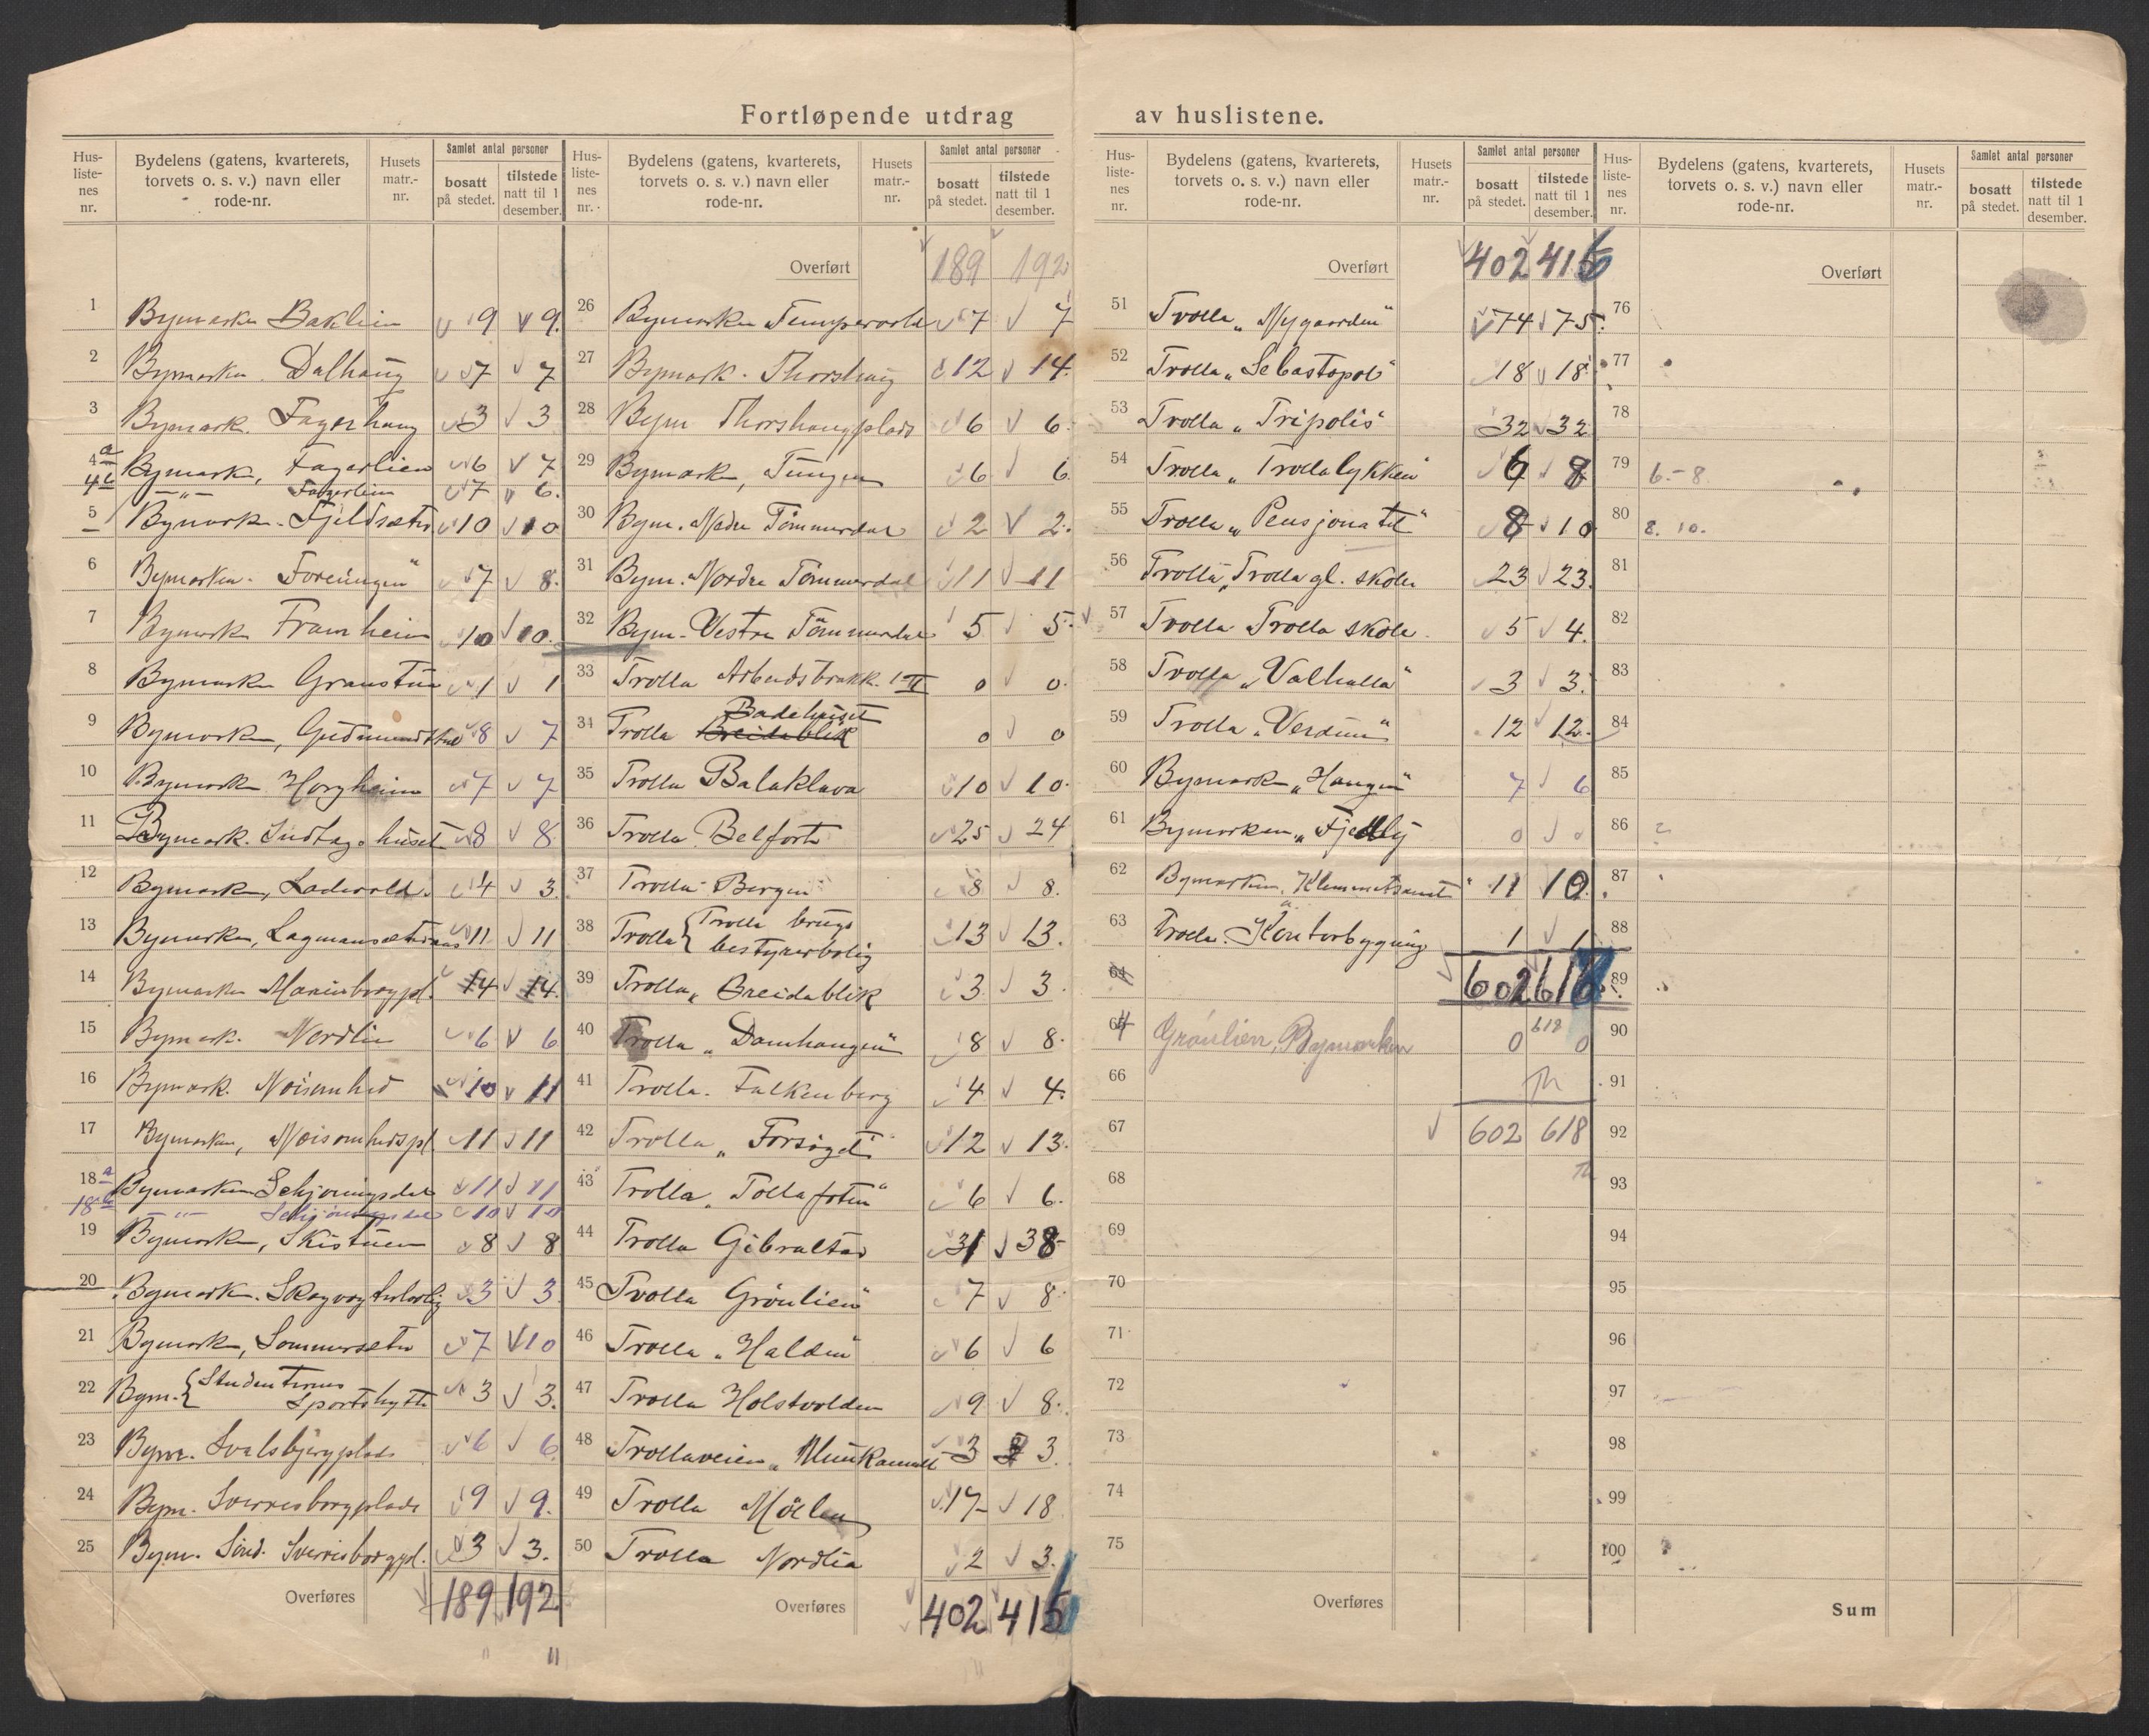 Fortløpende utdrag av huslistene.
Hus-listenes nr. Bydelens (gatens, kvarterets, torvets o. s. v.) navn eller rode-nr. Husets matr.-nr. Samlet antal personer bosatt på stedet. tilstede natt til 1 desember.
1 Bymarken Baklien 9 9.
2 Bymarken Dalhaug 7 7
3 Bymark. Fagerhaug 3 3
4a Bymark, Fagerlien 6 7
4b —"— Fagerlien 7 6.
5 Bymark. Fjeldsæter 10 10
6 Bymarken. Foreningen" 7 8.
7 Bymark Framheim 10 10.
8 Bymarken Granstua 1 1
9 Bymarken, Gudmundsthal 8 7
10 Bymark Horgheim 7 7
11 Bymark. Indtagshuset 8 8
12 Bymarken, Ladevold. 4 3.
13 Bymarken, Lagmansæteraas 11 11
14 Bymarken Marienborgpl. 14 14.
15 Bymark. Nordlien 6 6
16 Bymark. Moisomhed 10 11
17 Bymarken, Moisomhedspl. 11 11
18a Bymarken Schjøningsdal 11 11
18b —"— Schjøningsdal 10 10
19 Bymark, Skistuen 8 8
20 Bymark. Skogvogterbolig 3 3.
21 Bymark, Sommersæter 7 10
22 Bym. { Studenternes Sportshytte 3 3.
23 Bym. Svalsbjergplads 6 6.
24 Bym. Sverresborgplads 9 9.
25 Bym. Sönd. Sverresborgpl. 3 3.
Overføres 189 192
Hus-listenes nr. Bydelens (gatens, kvarterets, torvets o. s. v.) navn eller rode-nr. Husets matr.-nr. Samlet antal personer bosatt på stedet. tilstede natt til 1 desember.
Overført 189 192
26 Bymarken Tempervold 7 7
27 Bymark. Thorshaug 12 14.
28 Bym Thorshaugplads 6 6.
29 Bymark, Tungen 6 6.
30 Bym. Nedre Tömmerdal 2 2.
31 Bym. Nordre Tömmerdal 11 11
32 Bym. Vestre Tömmerdal 5 5.
33 Trolla Arbeidsbrakk. I-II 0 0.
34 Trolla Breidablik Badehuset 0 0
35 Trolla Balaklava 10 10.
36 Trolla Belfort 25 24
37 Trolla Bergen 8 8.
38 Trolla { Trolla brugs bestyrerbolig 13 13.
39 Trolla „ Breidablik 3 3.
40 Trolla „ Damhaugen" 8 8.
41 Trolla. Falkenberg 4 4.
42 Trolla „ Forsöget" 12 13.
43 Trolla „ Tollafoten" 6 6.
44 Trolla Gibraltar 31 38
45 Trolla Grönlien" 7 8.
46 Trolla „ Halden" 6 6
47 Trolla Holstvolden 9 8.
48 Trollaveien „ Munkamoll 3 3.
49 Trolla Möllen 17 18
50 Trolla Nordlia 2 3.
Overføres 402 416
Hus-listenes nr. Bydelens (gatens, kvarterets, torvets o. s. v.) navn eller rode-nr. Husets matr.-nr. Samlet antal personer bosatt på stedet. tilstede natt til 1 desember.
Overført 402 416
51 Trolla „ Nygaarden" 74 75.
52 Trolla „ Sebastopol" 18 18
53 Trolla „ Tripolis" 32 32
54 Trolla „ Trollalykken" 6 8
55 Trolla „ Pensjonatet" 8 10
56 Trolla „ Trolla gl. skole 23 23.
57 Trolla Trolla skole. 5 4.
58 Trolla „ Valhalla" 3 3.
59 Trolla „ Verdun" 12 12.
60 Bymarken „ Haugen" 7 6
61 Bymarken „ Fjellly 0 0
62 Bymarken „ Klemmetsaunet" 11 10.
63 Trolla. Kontorbygning 1 1
64 602 618
618
64 Grønlien, Bymarken 0 0
66 Th
67 602 618
68 Th
69
70
71
72
73
74
75
Overføres
Hus-listenes nr. Bydelens (gatens, kvarterets, torvets o. s. v.) navn eller rode-nr. Husets matr.-nr. Samlet antal personer bosatt på stedet. tilstede natt til 1 desember.
Overført
76
77
78
79 6.-8.
80 8. 10.
81
82
83
84
85
86
87
88
89
90
91
92
93
94
95
96
97
98
99
100
Sum